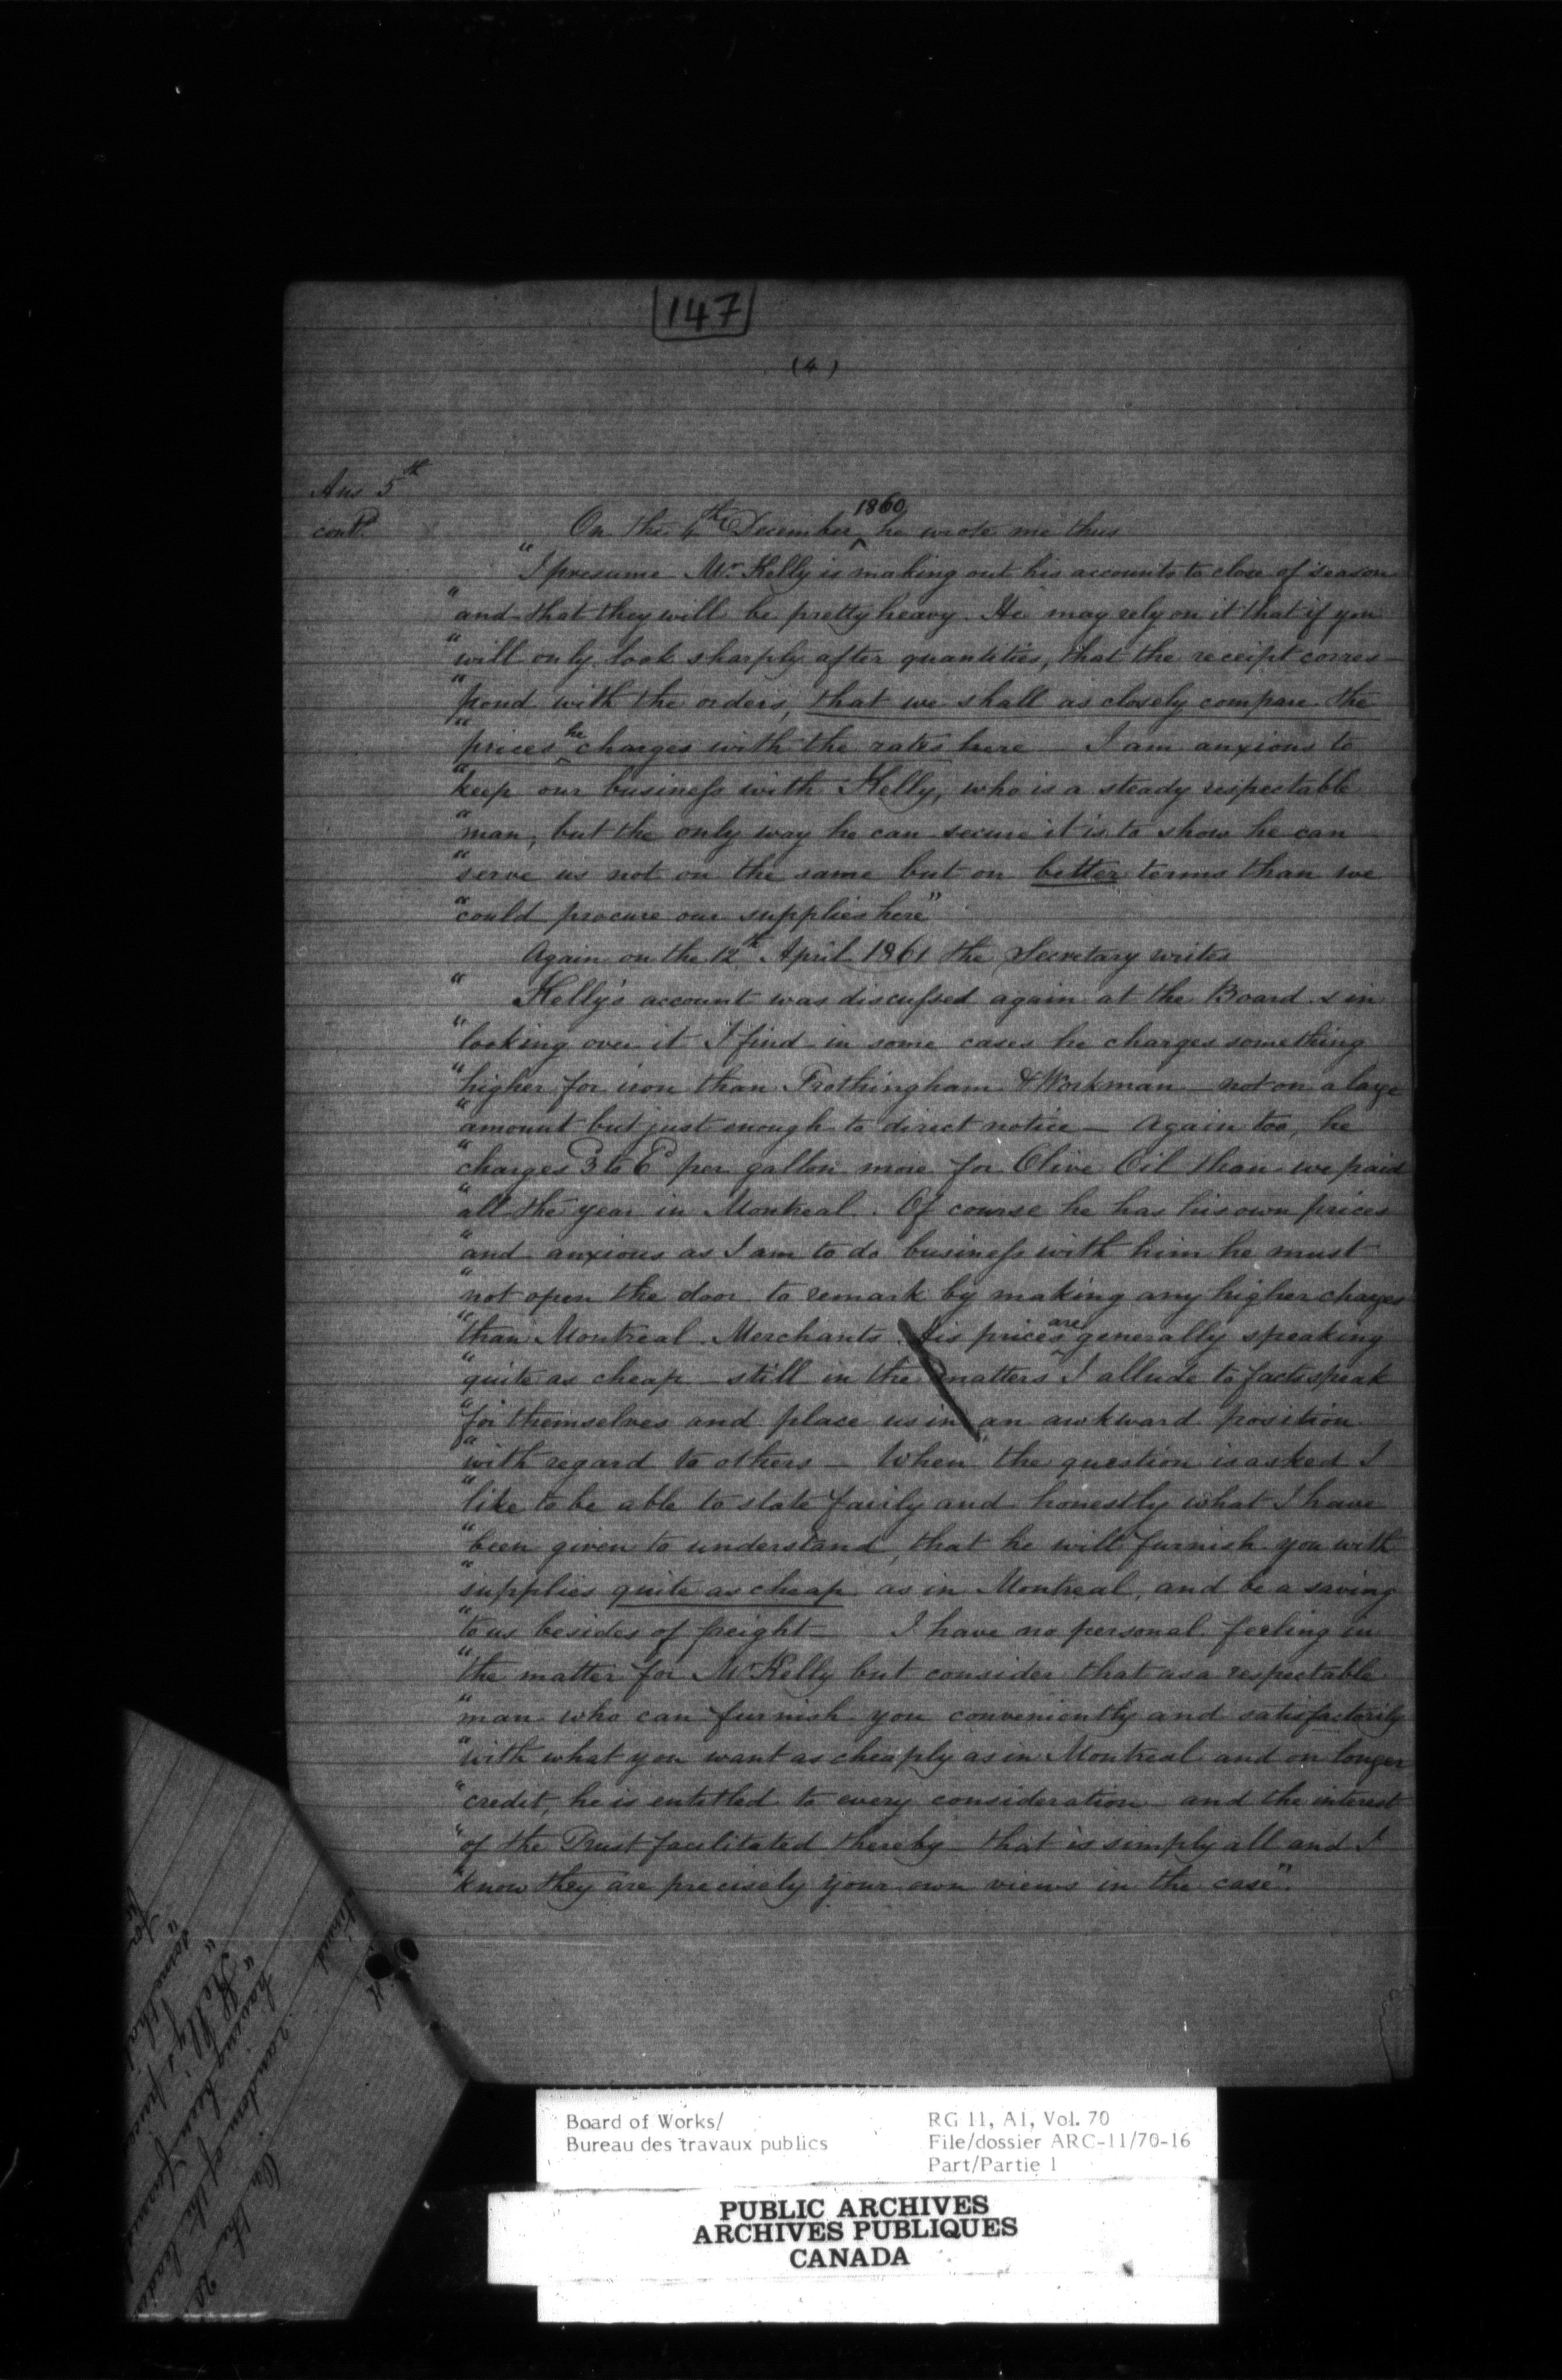 147
(4)
Ans 5th
contd.
On the 4th December 1860 he wrote me thus
"I presume Mr. Kelly is making out his accounts to close of season
"and that they will be pretty heavy. He may rely on it that if you
"will only look sharply after quantities, that the receipt corres-
"pond with the orders, that we shall as closely compare the
"prices he charges with the rates here — I am anxious to
"keep our business with Kelly, who is a steady respectable
"man, but the only way he can secure it is to show he can
"serve us not on the same but on better terms than we
"could procure our supplies here"
Again on the 12th April 1861 the Secretary writes
" Kelly's account was discussed again at the Board & in
"looking over it I find in some cases he charges something
"higher for iron than Frothingham & Workman — not on a large
"amount but just enough to direct notice — Again too, he
"charges 3 to 6d per gallon more for Olive Oil than we paid
"all the year in Montreal. Of course he has his own prices
"and anxious as I am to do business with him he must
"not open the door to remark by making any higher charges
"than Montreal Merchants. His prices are generally speaking
"quite as cheap — still in the matters I allude to facts speak
"for themselves and place us in an awkward position
"with regard to others — When the question is asked I
"like to be able to state fairly and honestly what I have
"been given to understand, that he will furnish you with
"supplies quite as cheap as in Montreal, and be a saving
"to us besides of freight — I have no personal feeling in
"the matter for Mr Kelly but consider that as a respectable
"man who can furnish you conveniently and satisfactorily
"with what you want as cheaply as in Montreal and on longer
"credit, he is entitled to every consideration and the interest
"of the Trust facilitated thereby — that is simply all and I
"know they are precisely your own views in the case".
On the 20
random of the
having been
"Kelly's
"same
Board of Works/
Bureau des travaux publics
RG 11, A1, Vol. 70
File/dossier ARC-11/70-16
Part/Partie 1
PUBLIC ARCHIVES
ARCHIVES PUBLIQUES
CANADA